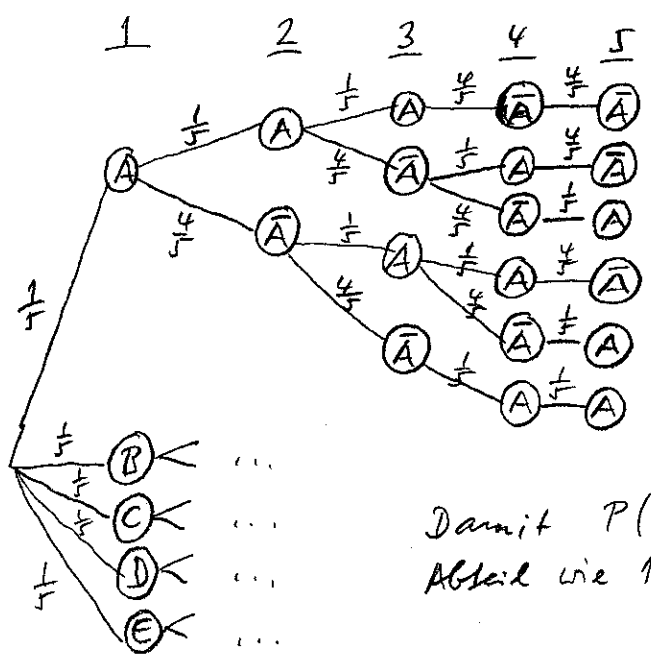 1 2 3 4 5
1/5 A 1/5 A 1/5 A 4/5 Ā 4/5 Ā
4/5 Ā 1/5 A 4/5 Ā
4/5 Ā 1/5 A
4/5 Ā 1/5 A 1/5 A 4/5 Ā
4/5 Ā 1/5 A
4/5 Ā 1/5 A 1/5 A
1/5 B ...
1/5 C ...
1/5 D ...
1/5 E ...
Damit P(
Abteil wie 1